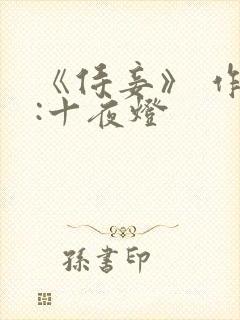 《侍妾》 作
:十夜燈
孫書印